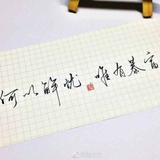 何以解忧 唯有暴富